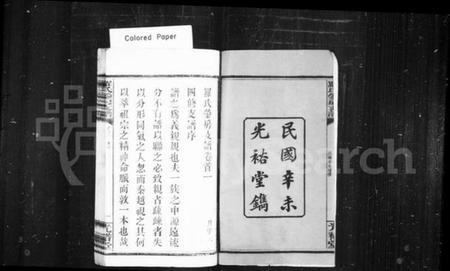 Colored Paper
民國辛未
光裕堂鐫
羅氏榮房支譜卷首一
四修支譜序
譜之為義親親也夫一族之中源遠流
分不有譜以聯之必致親者疏疏者失
以分形同氣之人忽而秦越視之其何
以萃祖宗之精神命脈而敦一本也哉